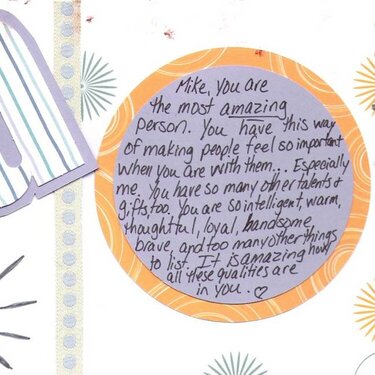 Mike, you are
the most amazing
person. You have this way
of making people feel so important
when you are with them... Especially
me. You have so many other talents +
gifts, too. You are so intelligent, warm,
thoughtful, loyal, handsome
brave, and too many other things
to list. It is amazing how
all these qualities are
in you. ♡